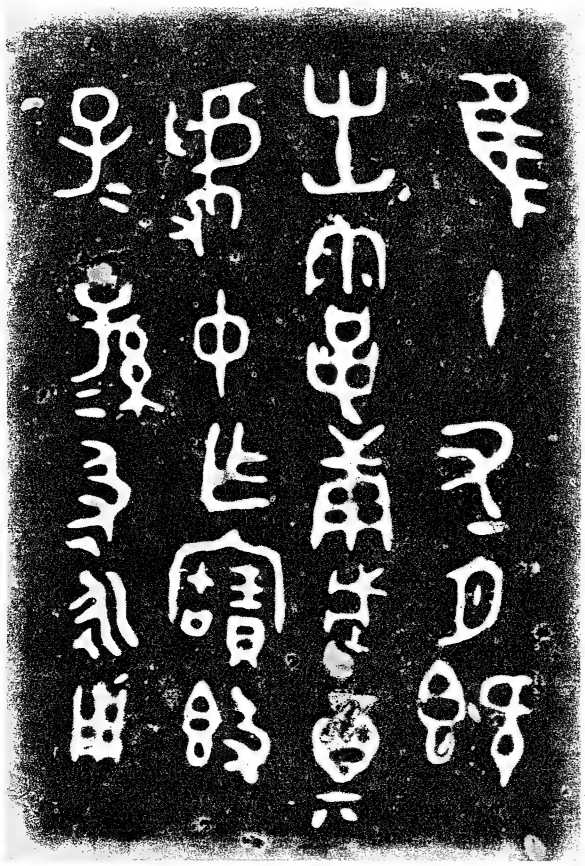 隹十又一月既
生霸庚戌奠
虢中乍寶𣪘
子＝孫＝彶永用